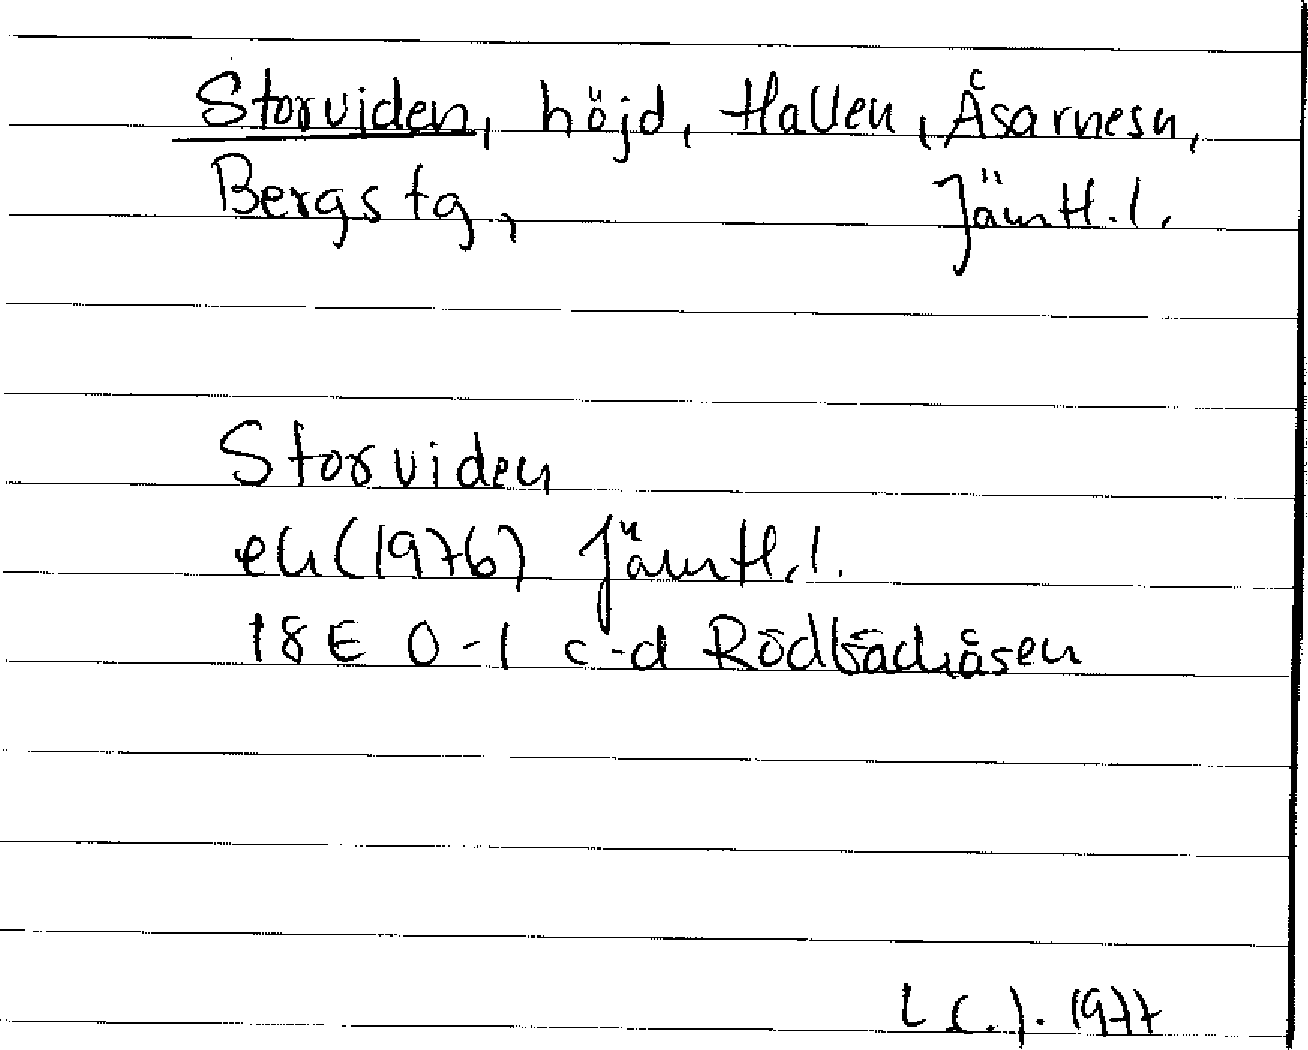 Storviden, höjd, Hallen, Åsarnesn,
Bergs tg, Jämtl.l.
Storviden
ek (1976) Jämtl.l.
18E 0-1 c-d Rödbäckåsen
1977